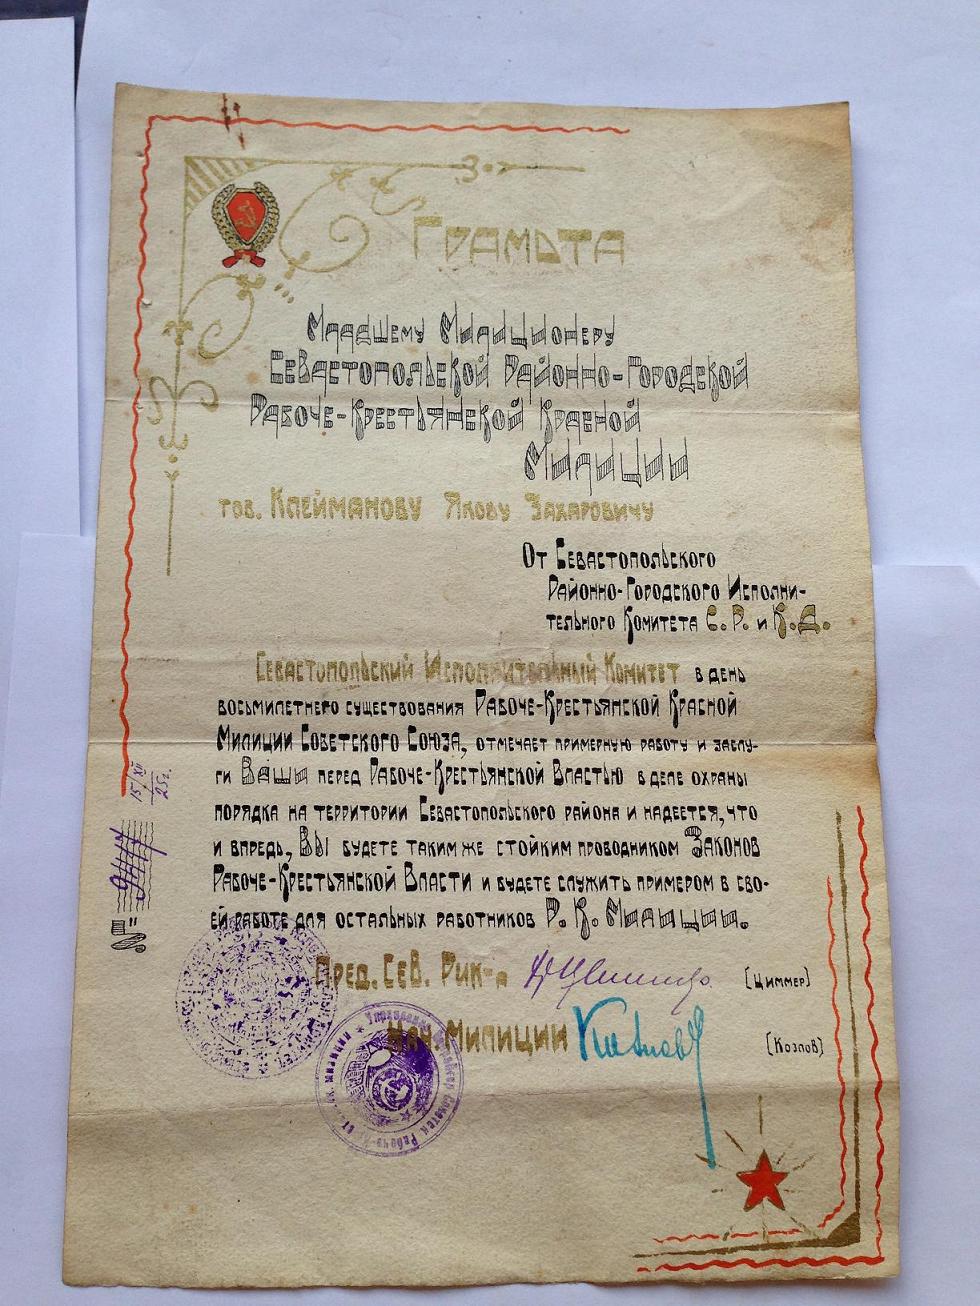 Грамота
Младшему Милиционеру
Севастопольской Районно-Городской
Рабоче-Крестьянской Красной
Милиции
тов. Клейманову Якову Захаровичу
От Севастопольского
Районно-Городского Исполни-
тельного Комитета С. Р. и К. Д.
Севастопольский Исполнительный Комитет в день
восьмилетнего существования Рабоче-Крестьянской Красной
Милиции Советского Союза, отмечает примерную работу и заслу-
ги Ваши перед Рабоче-Крестьянской Властью в деле охраны
порядка на территории Севастопольского района и надеется, что
и впредь, Вы будете таким же стойким проводником Законов
Рабоче-Крестьянской Власти и будете служить примером в сво-
ей работе для остальных работников Р. К. Милиции.
Пред. Сев. Рик-а [Циммер]
Нач. Милиции [Козлов]
15/XII
25 г.
Управление
Милиции